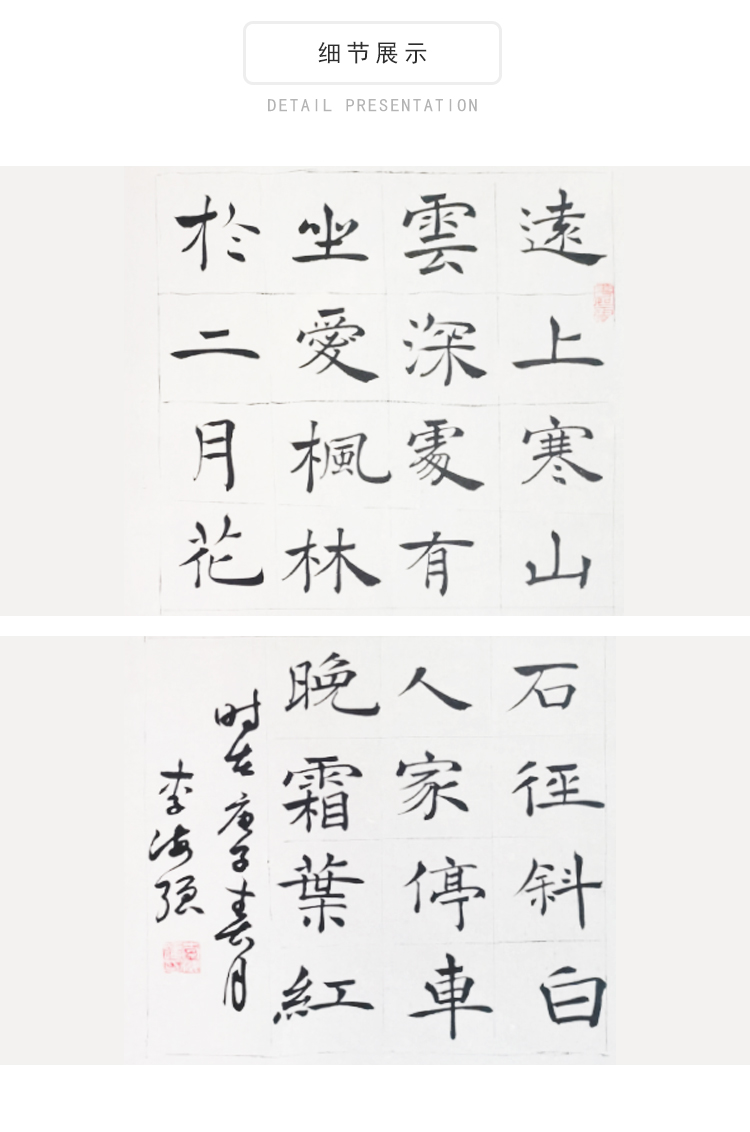 细节展示
DETAIL PRESENTATION
遠上寒山
雲深處有
坐愛楓林
於二月花
石徑斜白
人家停車
晚霜葉紅
时在庚子春月
李海强